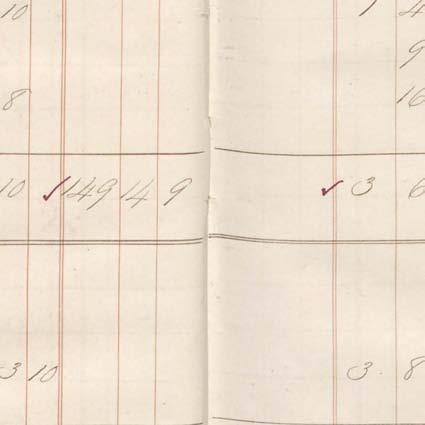 10 1 4
9
8 16
10 ✓149 14 9 ✓ 3 6
3 10 3. 8